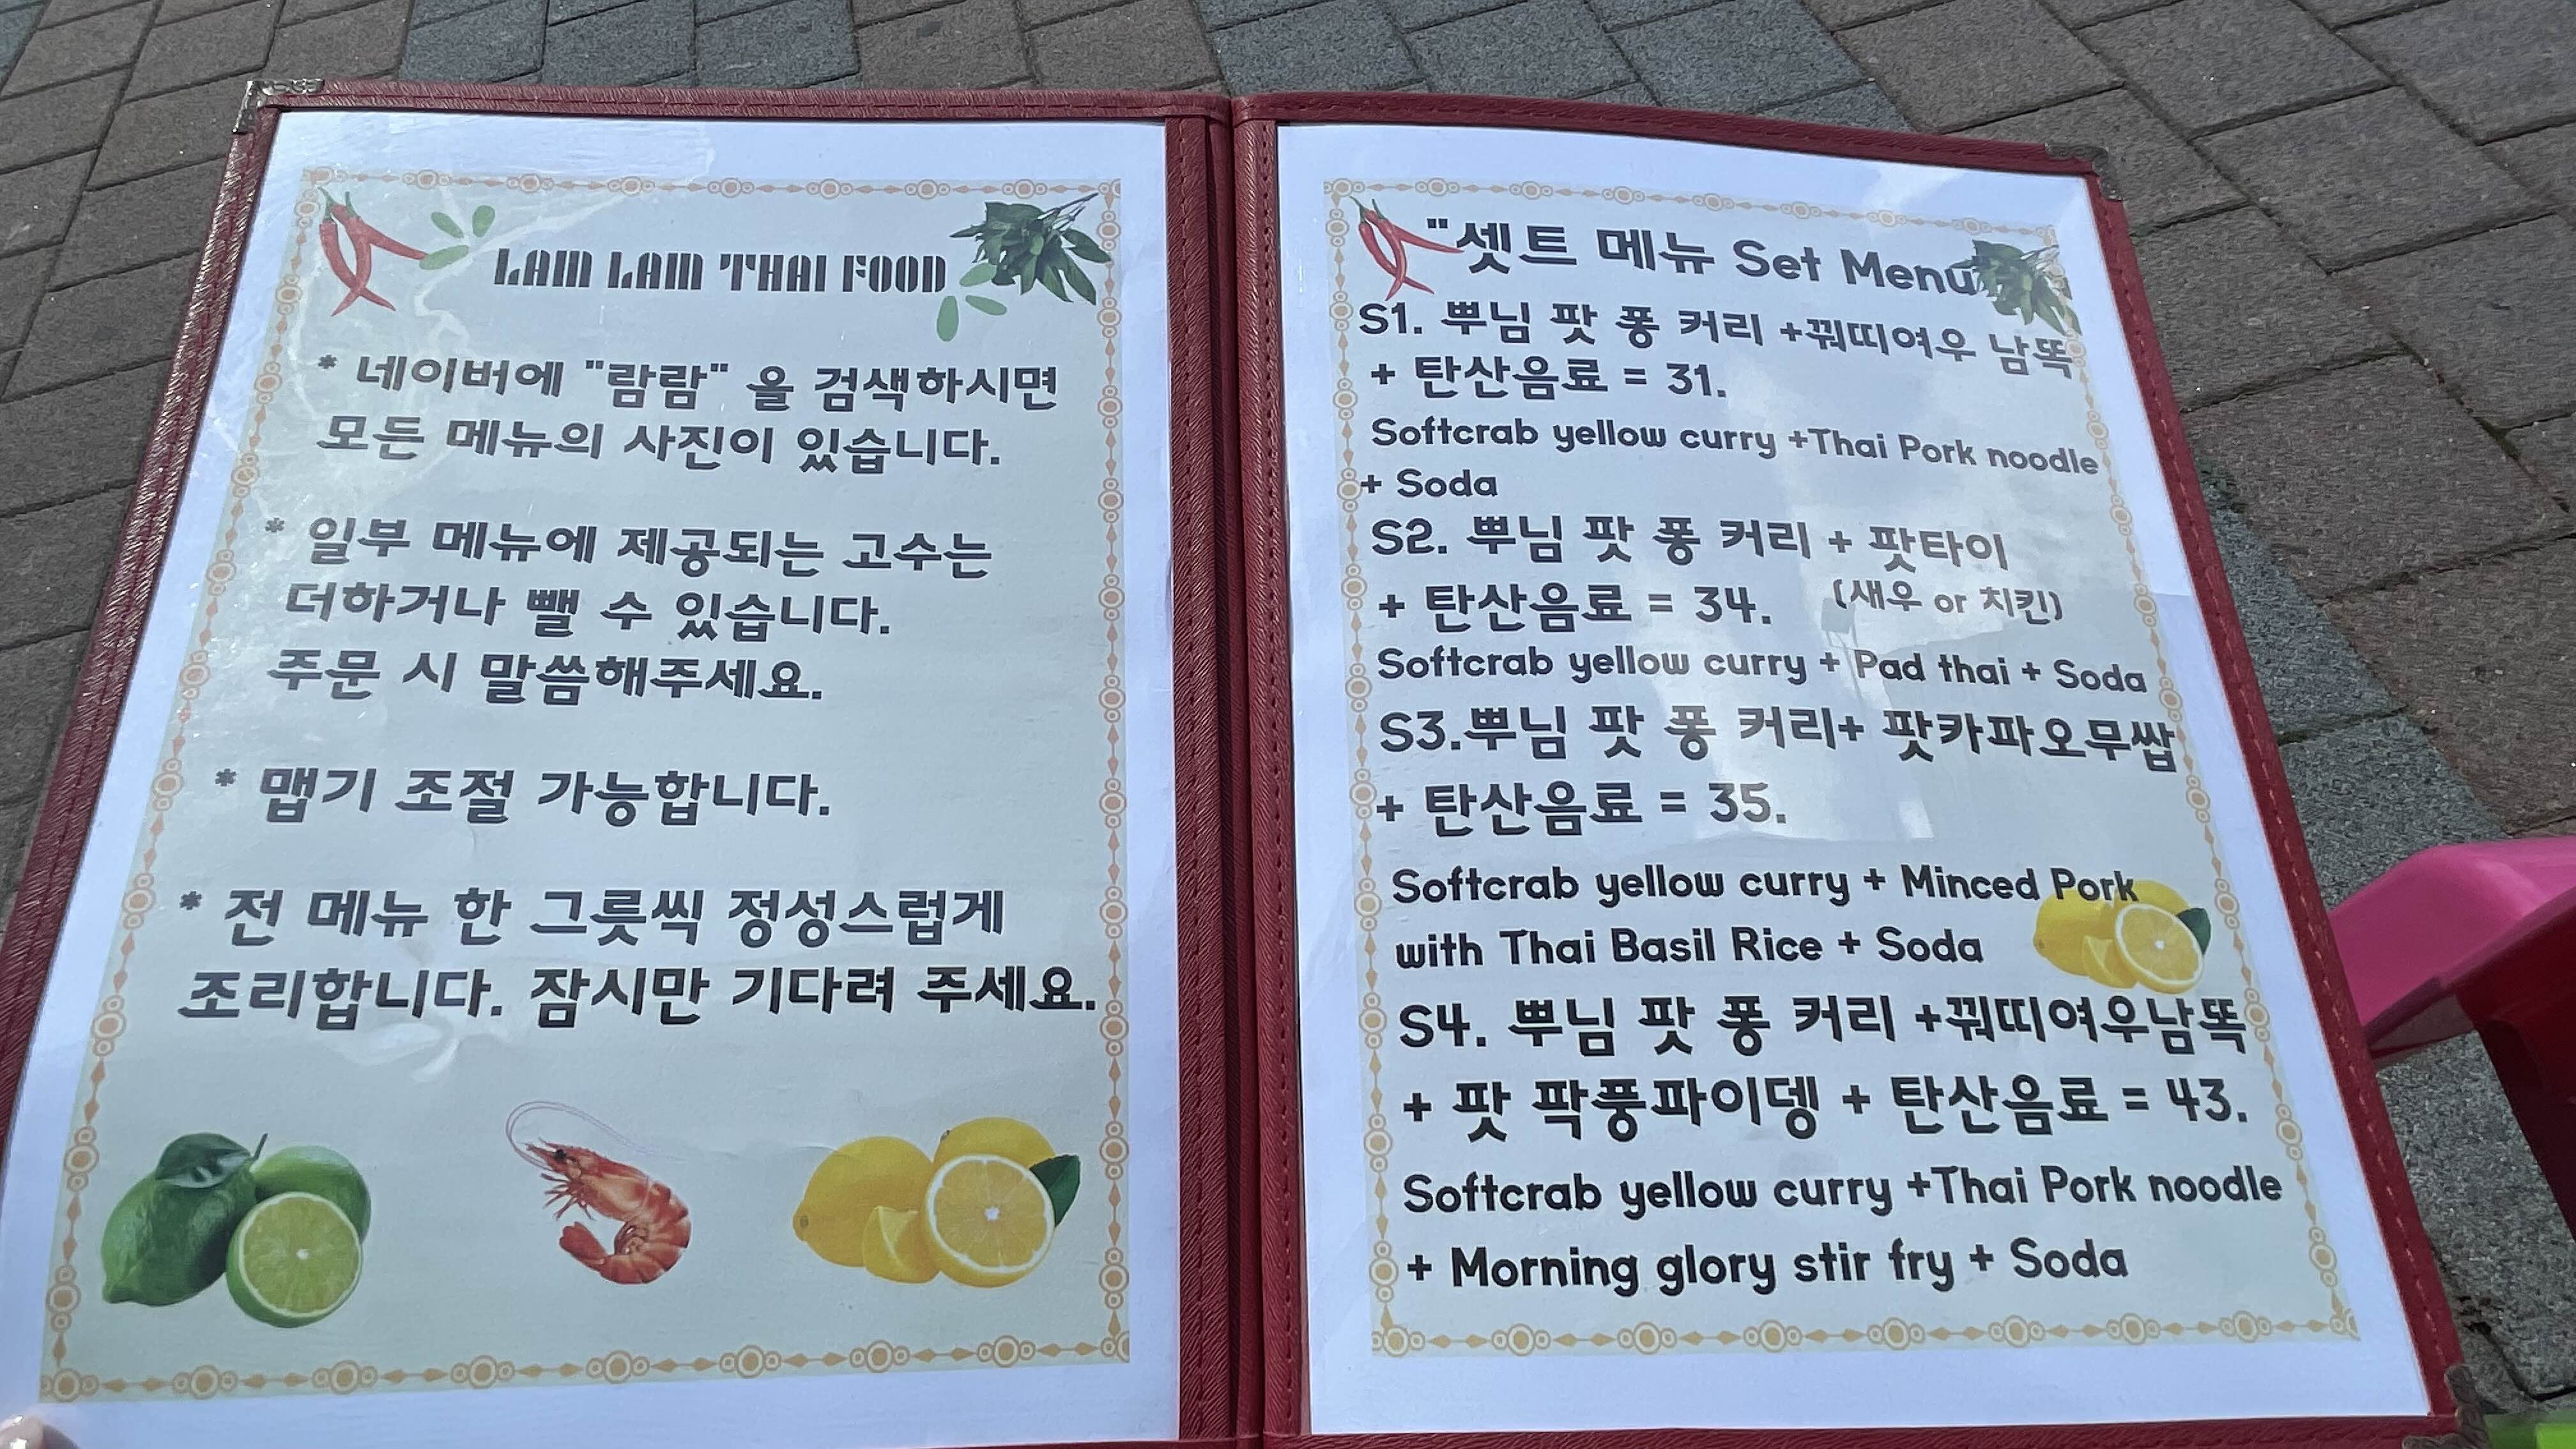 LAM LAM THAI FOOD
* 네이버에 "람람" 을 검색하시면
모든 메뉴의 사진이 있습니다.
* 일부 메뉴에 제공되는 고수는
더하거나 뺄 수 있습니다.
주문 시 말씀해주세요.
* 맵기 조절 가능합니다.
* 전 메뉴 한 그릇씩 정성스럽게
조리합니다. 잠시만 기다려 주세요.
"셋트 메뉴 Set Menu
S1. 뿌님 팟 퐁 커리 +꿔띠여우 남똑
+ 탄산음료 = 31.
Softcrab yellow curry +Thai Pork noodle
+ Soda
S2. 뿌님 팟 퐁 커리 + 팟타이
+ 탄산음료 = 34. (새우 or 치킨)
Softcrab yellow curry + Pad thai + Soda
S3.뿌님 팟 퐁 커리+ 팟카파오무쌉
+ 탄산음료 = 35.
Softcrab yellow curry + Minced Pork
with Thai Basil Rice + Soda
S4. 뿌님 팟 퐁 커리 +꿔띠여우남똑
+ 팟 팍풍파이뎅 + 탄산음료 = 43.
Softcrab yellow curry +Thai Pork noodle
+ Morning glory stir fry + Soda